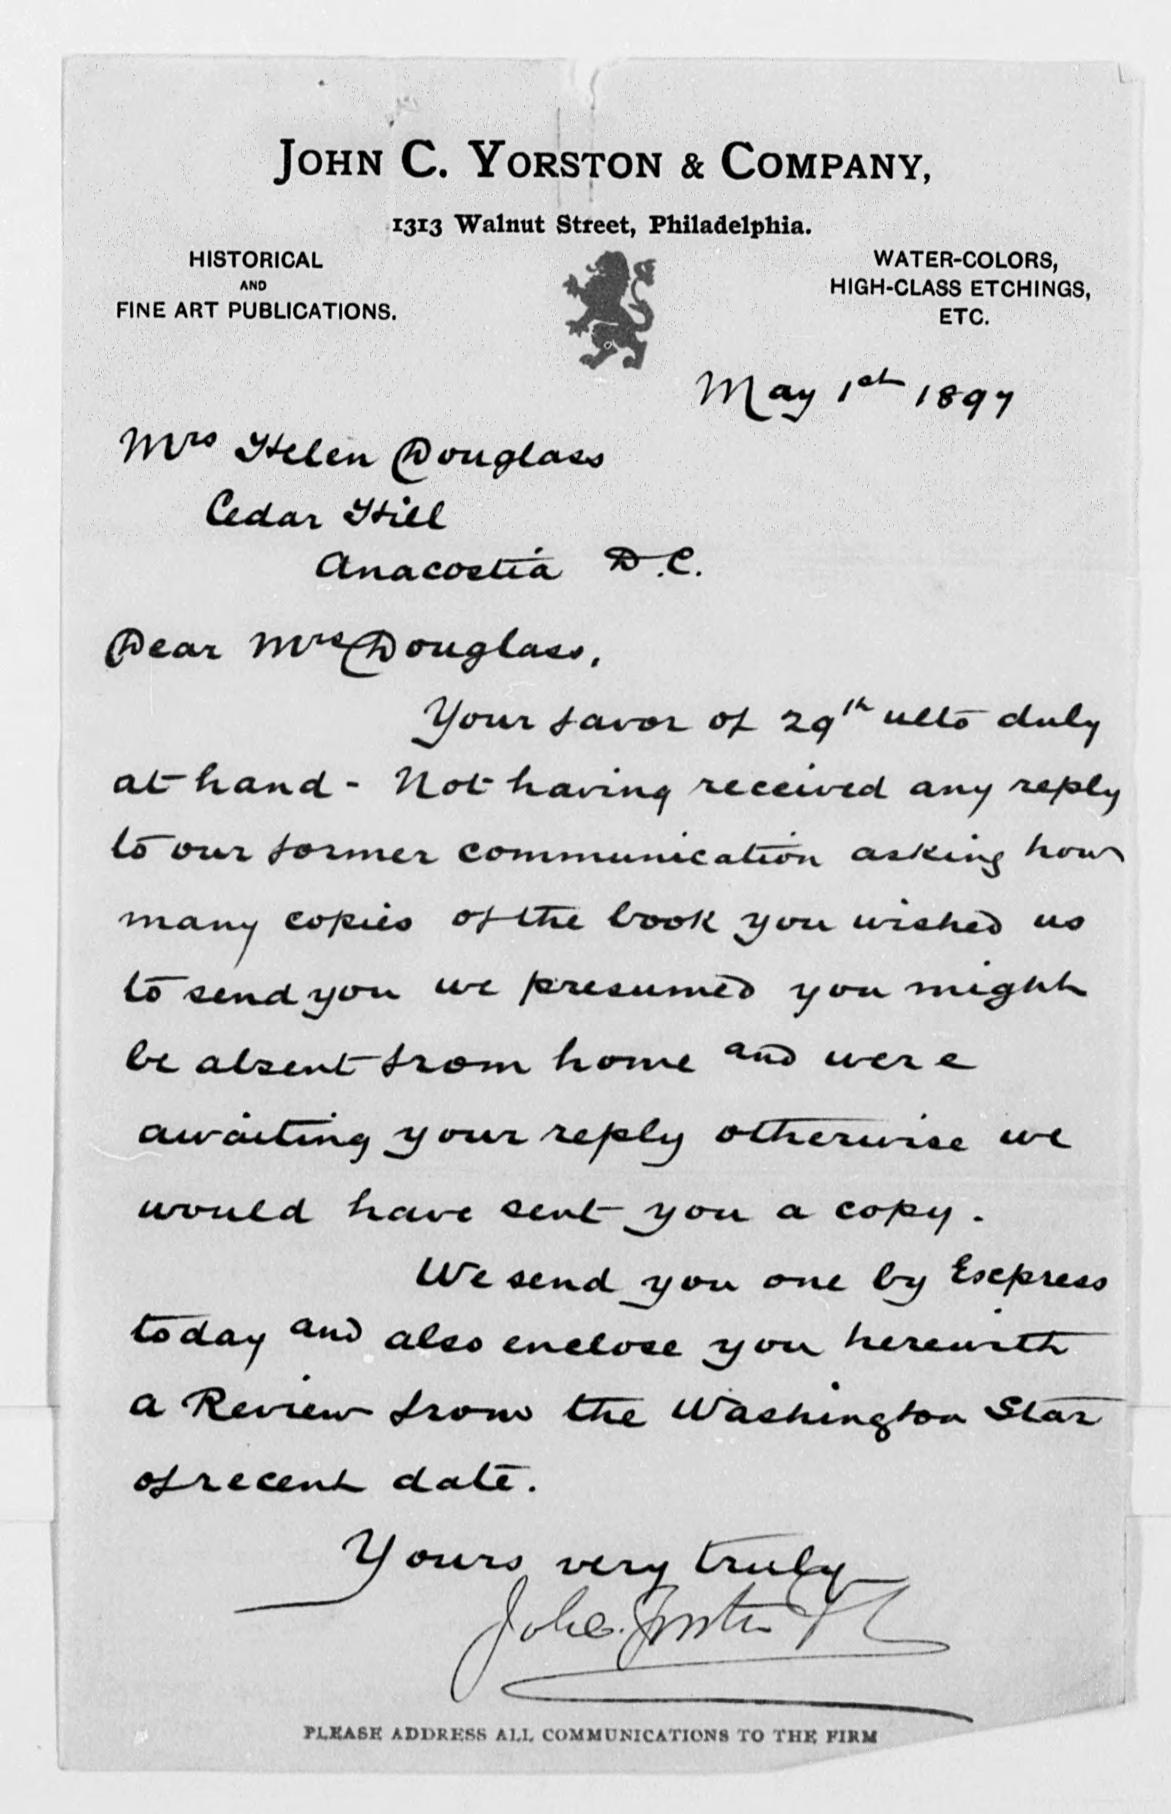 JOHN C. YORSTON & COMPANY,
1313 Walnut Street, Philadelphia.
HISTORICAL
AND
FINE ART PUBLICATIONS.
WATER-COLORS,
HIGH-CLASS ETCHINGS,
ETC.
May 1st 1897
Mrs Helen Douglass
Cedar Hill
Anacostia D.C.
Dear Mrs Douglass,
Your favor of 29th ulto duly
at hand - Not having received any reply
to our former communication asking how
many copies of the book you wished us
to send you we presumed you might
be absent from home and were
awaiting your reply otherwise we
would have sent you a copy.
We send you one by Express
today and also enclose you herewith
a Review from the Washington Star
of recent date.
Yours very truly
Jno C. Yorston & Co
PLEASE ADDRESS ALL COMMUNICATIONS TO THE FIRM